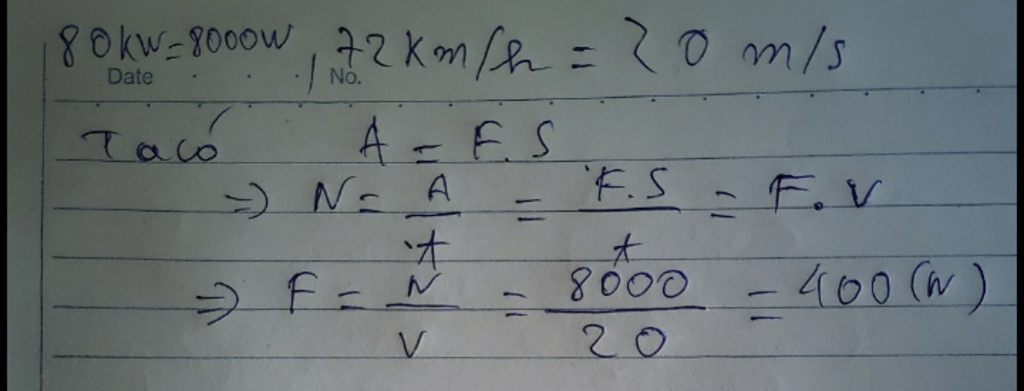 80kW=8000W, 72km/h = 20 m/s
Date No.
Ta có A = F.S
=> N = A/t = F.S/t = F.v
=> F = N/v = 8000/20 = 400 (N)